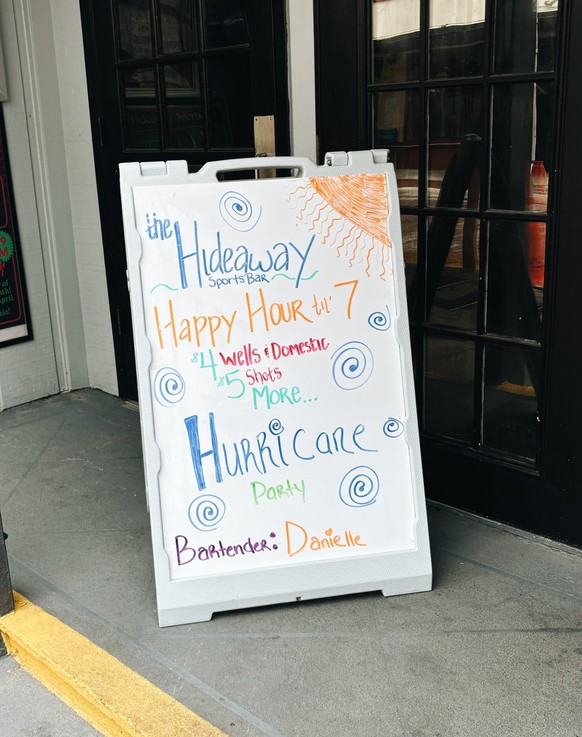 the
Hideaway
Sports Bar
Happy Hour til' 7
$4 Wells & Domestic
$5 Shots
More...
Hurricane
Party
Bartender: Danielle